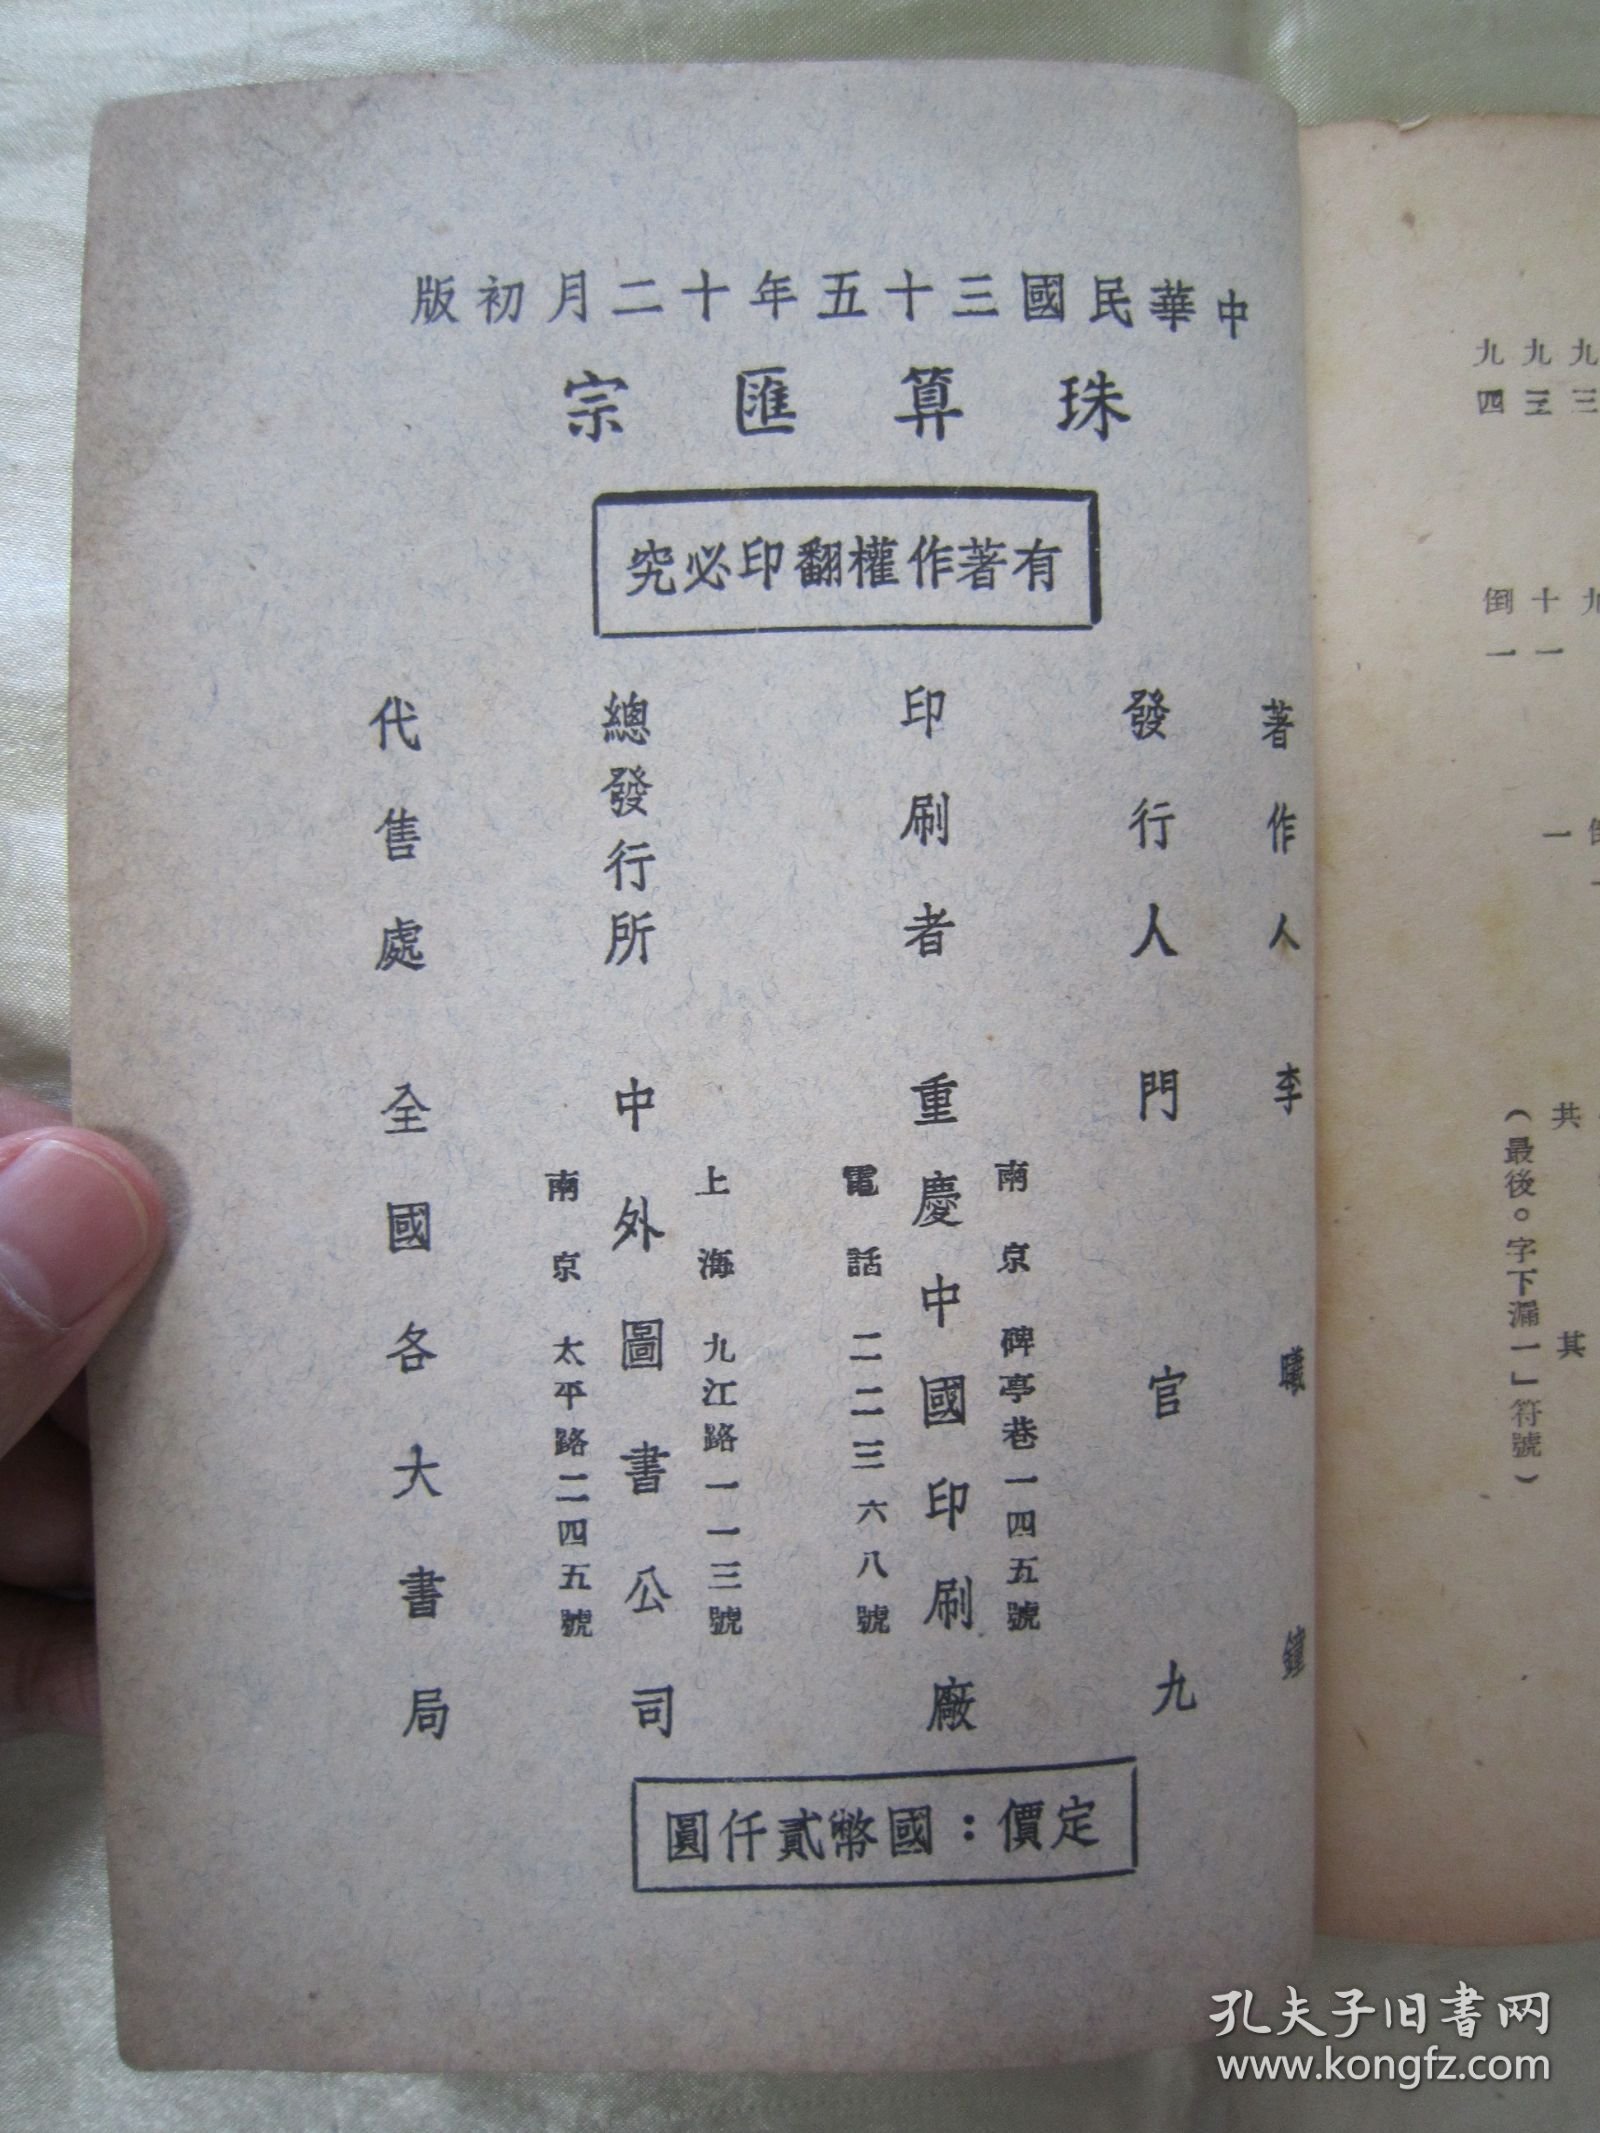 中華民國三十五年十二月初版
珠算匯宗
有著作權翻印必究
著作人 李曦鏵
發行人 門官九
南京碑亭巷一四五號
印刷者 重慶中國印刷廠
電話二二三六八號
上海九江路一一三號
總發行所 中外圖書公司
南京太平路二四五號
代售處 全國各大書局
定價：國幣貳仟圓
九三
九三
九四
九
十一
倒一
一
共
其
（最後。字下漏一」符號）
孔夫子旧书网
www.kongfz.com